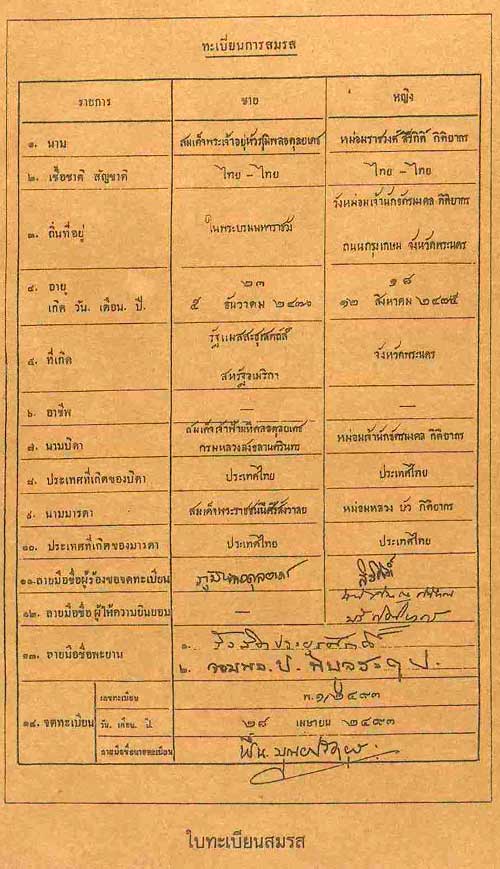 ทะเบียนการสมรส
รายการ ชาย หญิง
๑. นาม สมเด็จพระเจ้าอยู่หัวภูมิพลอดุลยเดช หม่อมราชวงศ์ สิริกิติ์ กิติยากร
๒. เชื้อชาติ สัญชาติ ไทย - ไทย ไทย - ไทย
วังหม่อมเจ้านักขัตรมงคล กิติยากร
๓. ถิ่นที่อยู่ ในพระบรมมหาราชวัง
ถนนกรุงเกษม จังหวัดพระนคร
๔. อายุ ๒๓ ๑๘
เกิด วัน. เดือน. ปี. ๕ ธันวาคม ๒๔๗๐ ๑๒ สิงหาคม ๒๔๗๕
รัฐแมสสะชูเสตต์ส์
๕. ที่เกิด จังหวัดพระนคร
สหรัฐอเมริกา
๖. อาชีพ —
สมเด็จเจ้าฟ้ามหิดลอดุลยเดช
๗. นามบิดา กรมหลวงสงขลานครินทร์ หม่อมเจ้านักขัตรมงคล กิติยากร
๘. ประเทศที่เกิดของบิดา ประเทศไทย ประเทศไทย
๙. นามมารดา สมเด็จพระราชชนนีศรีสังวาลย์ หม่อมหลวง บัว กิติยากร
๑๐. ประเทศที่เกิดของมารดา ประเทศไทย ประเทศไทย
๑๑. ลายมือชื่อผู้ร้องขอจดทะเบียน ภูมิพลอดุลยเดช สิริกิติ์
๑๒. ลายมือชื่อ ผู้ให้ความยินยอม —
๑๓. ลายมือชื่อพะยาน ๑. รังสิตประยูรศักดิ์
๒. จอมพล. ป. พิบูลสงคราม
เลขทะเบียน พ.๑/๒๔๙๓
๑๔. จดทะเบียน วัน. เดือน. ปี. ๒๘ เมษายน ๒๔๙๓
ลายมือชื่อนายทะเบียน ฟื้น. บุณยปรัตยุธ
ใบทะเบียนสมรส